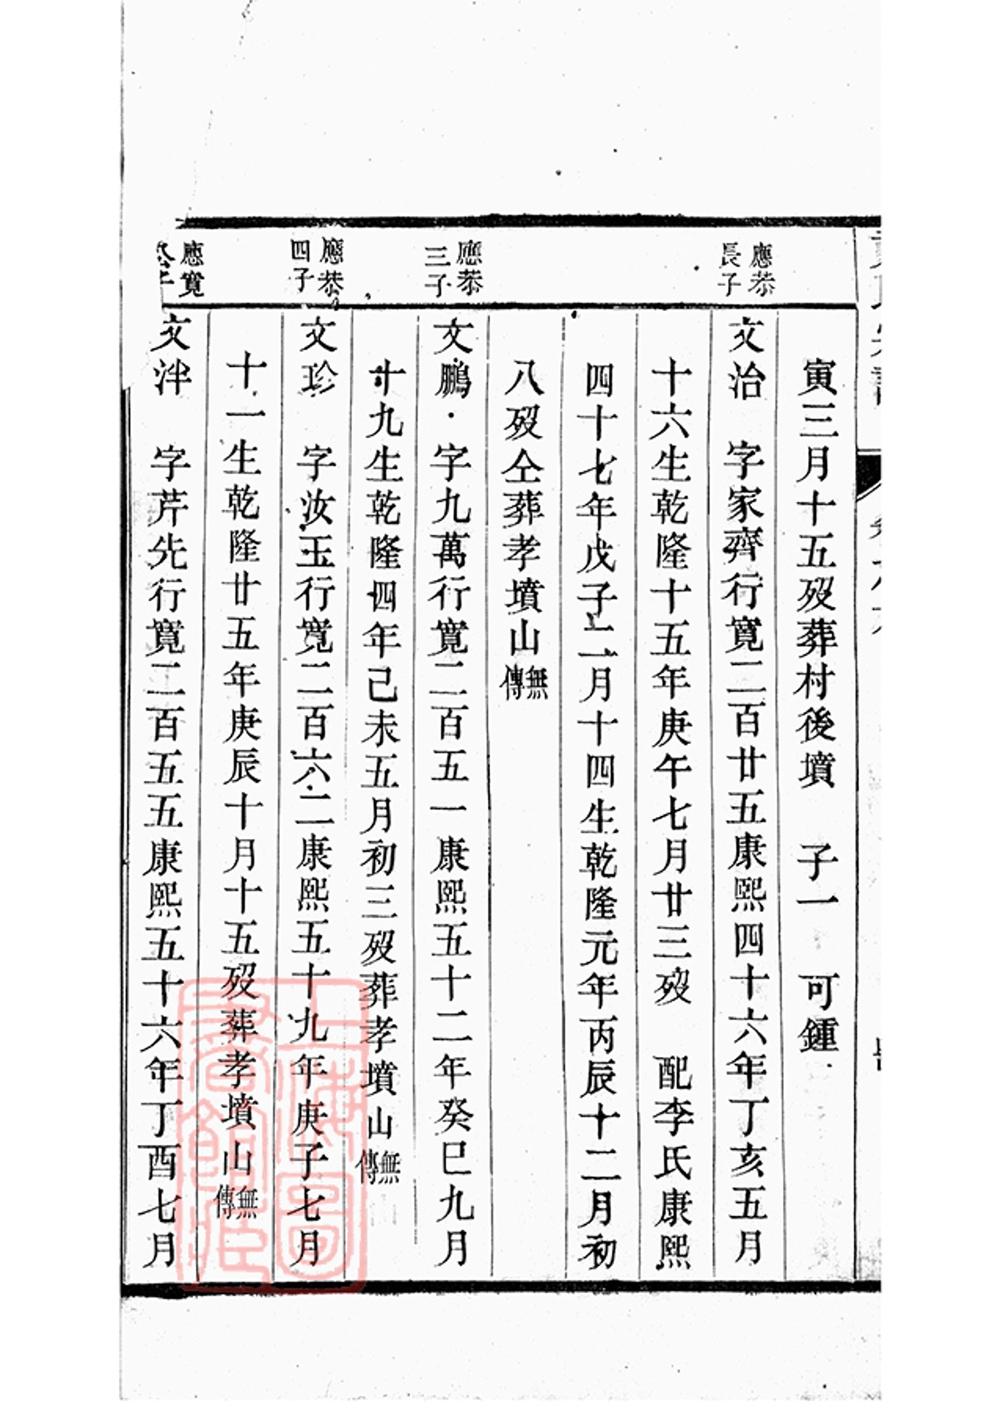 寅三月十五歿葬村後墳　子一　可鍾
應恭長子
文治　字家齊行寬二百廿五康熙四十六年丁亥五月
十六生乾隆十五年庚午七月廿三歿　配李氏康熙
四十七年戊子二月十四生乾隆元年丙辰十二月初
八歿仝葬孝墳山無傳
應恭三子
文鵬　字九萬行寬二百五一康熙五十二年癸巳九月
十九生乾隆四年己未五月初三歿葬孝墳山無傳
應恭四子
文珍　字汝玉行寬二百六二康熙五十九年庚子七月
十一生乾隆廿五年庚辰十月十五歿葬孝墳山無傳
應寬
文泮　字芹先行寬二百五五康熙五十六年丁酉七月
上海圖書館藏